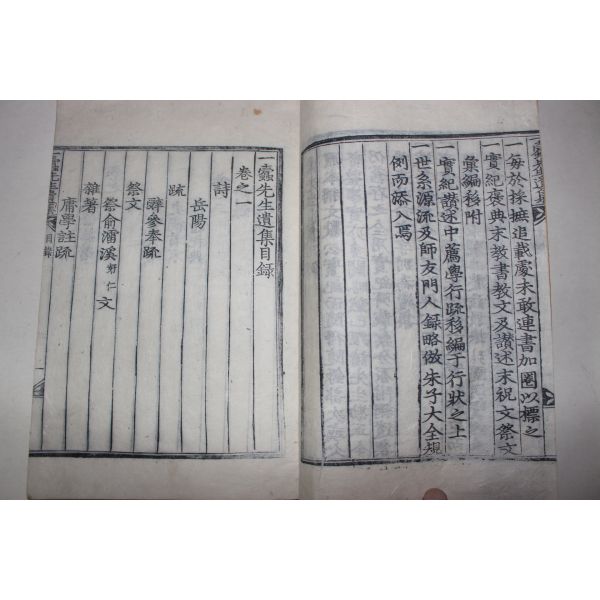 一每於採摭追載處未敢連書加圈以標之
一實紀褒典末教書教文及讚述末祝文祭文
彙編移附
一實紀讚述中薦學行疏移編于行狀之上
一世系源流及師友門人錄略倣朱子大全規
例而添入焉
一蠹先生遺集目錄
卷之一
詩
岳陽
疏
辭參奉疏
祭文
祭俞㵢溪好仁文
雜著
庸學註疏
目錄